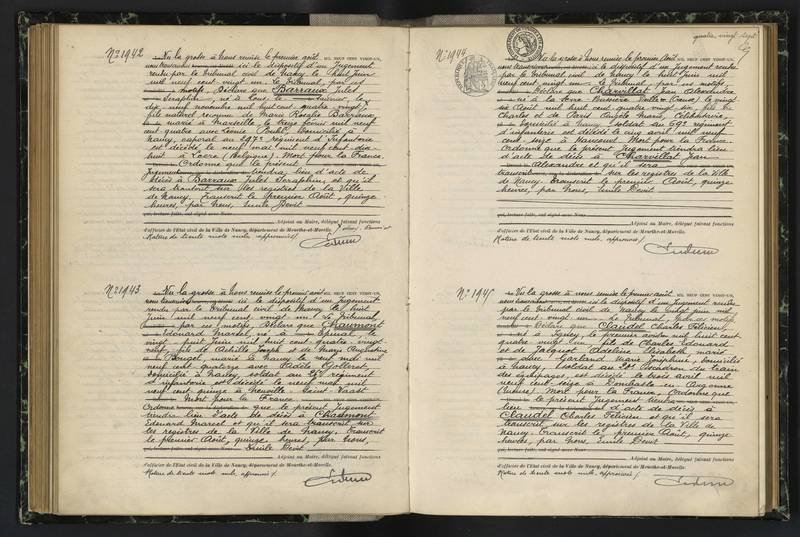 quatre vingt sept
N° 1942
Vu la grosse à nous remise le premier août MIL NEUF CENT VINGT-UN,
ici le dispositif d'un Jugement
rendu par le Tribunal civil de Nancy le huit juin
mil neuf cent vingt-un. Le Tribunal, par ces
motifs, Déclare que Barraux Jules
Séraphin, né à
dix neuf novembre mil huit cent quatre-vingt
fils naturel reconnu de Marie Rosalie Barraux,
marié à Marseille le treize février mil neuf
cent quatre avec Léonie domicilié à
Nancy, caporal au régiment d'Infanterie
est décédé le neuf mai mil neuf cent dix
huit à Locre (Belgique). Mort pour la France.
Ordonne que le présent
Jugement tiendra lieu d'acte de
décès à Barraux Jules Séraphin et qu'il
sera transcrit sur les registres de la Ville
de Nancy. Transcrit le premier Août, quinze
heures, par Nous, Emile Devit
qui, lecture faite, ont signé avec Nous
Adjoint au Maire, délégué faisant fonctions
d'officier de l'État civil de la Ville de Nancy, département de Meurthe-et-Moselle.
Rature de trente mots nuls approuvés
N° 1943
Vu la grosse à nous remise le premier août MIL NEUF CENT VINGT-UN,
ici le dispositif d'un Jugement
rendu par le Tribunal civil de Nancy le huit
juin mil neuf cent vingt-un. Le Tribunal,
par ces motifs, Déclare que Chaumont
Edouard Marcel, né à Epinal le
vingt huit juin mil huit cent quatre-vingt
fils de Achille Joseph et de Mary Augustine
marié à Nancy le neuf mai mil
neuf cent quatorze avec Adèle
domicilié à Nancy, soldat au régiment
d'infanterie est décédé le neuf mai mil
neuf cent quinze à Neuville Saint-Vaast
Mort pour la France.
Ordonne que le présent Jugement
tiendra lieu d'acte de décès à Chaumont
Edouard Marcel et qu'il sera transcrit sur
les registres de la Ville de Nancy. Transcrit
le premier Août, quinze heures, par Nous,
Emile Devit
Adjoint au Maire, délégué faisant fonctions
d'officier de l'État civil de la Ville de Nancy, département de Meurthe-et-Moselle.
Rature de trente mots nuls approuvés
N° 1944
Vu la grosse à nous remise le premier août MIL NEUF CENT VINGT-UN,
ici le dispositif d'un Jugement rendu
par le Tribunal civil de Nancy le huit juin mil
neuf cent vingt-un. Le Tribunal, par ces motifs
Déclare que Charvillat Jean Alexandre
né à la Serre-Bussière-Vieille (Creuse) le vingt
août mil huit cent quatre-vingt dix fils de
Charles et de Marie, Célibataire,
domicilié à Nancy soldat au 69e régiment
d'infanterie est décédé le cinq avril mil neuf
cent seize à Mort pour la France.
Ordonne que le présent Jugement tiendra lieu
d'acte de décès à Charvillat Jean
Alexandre et qu'il sera
transcrit sur les registres de la Ville
de Nancy. Transcrit le premier Août, quinze
heures, par Nous, Emile Devit
qui, lecture faite, ont signé avec Nous
Adjoint au Maire, délégué faisant fonctions
d'officier de l'État civil de la Ville de Nancy, département de Meurthe-et-Moselle.
Rature de trente mots nuls approuvés
N° 1945
Vu la grosse à nous remise le premier août MIL NEUF CENT VINGT-UN,
ici le dispositif d'un Jugement rendu
par le Tribunal civil de Nancy le vingt juin mil
neuf cent vingt-un. Le Tribunal, par ces motifs
Déclare que Claudel Charles Félicien,
né à le premier mil huit cent
quatre vingt un fils de Charles Edouard
et de Jacquot Adeline Elisabeth marié
avec Marie Joséphine, domicilié
à Nancy, soldat au 20e Escadron du train
des équipages, est décédé le trois avril mil
neuf cent seize à Dombasle en Argonne
(Meuse) Mort pour la France. Ordonne que
le présent Jugement tiendra
lieu d'acte de décès à
Claudel Charles Félicien et qu'il sera
transcrit sur les registres de la Ville de
Nancy. Transcrit le premier Août, quinze
heures, par Nous, Emile Devit
Adjoint au Maire, délégué faisant fonctions
d'officier de l'État civil de la Ville de Nancy, département de Meurthe-et-Moselle.
Rature de trente mots nuls approuvés